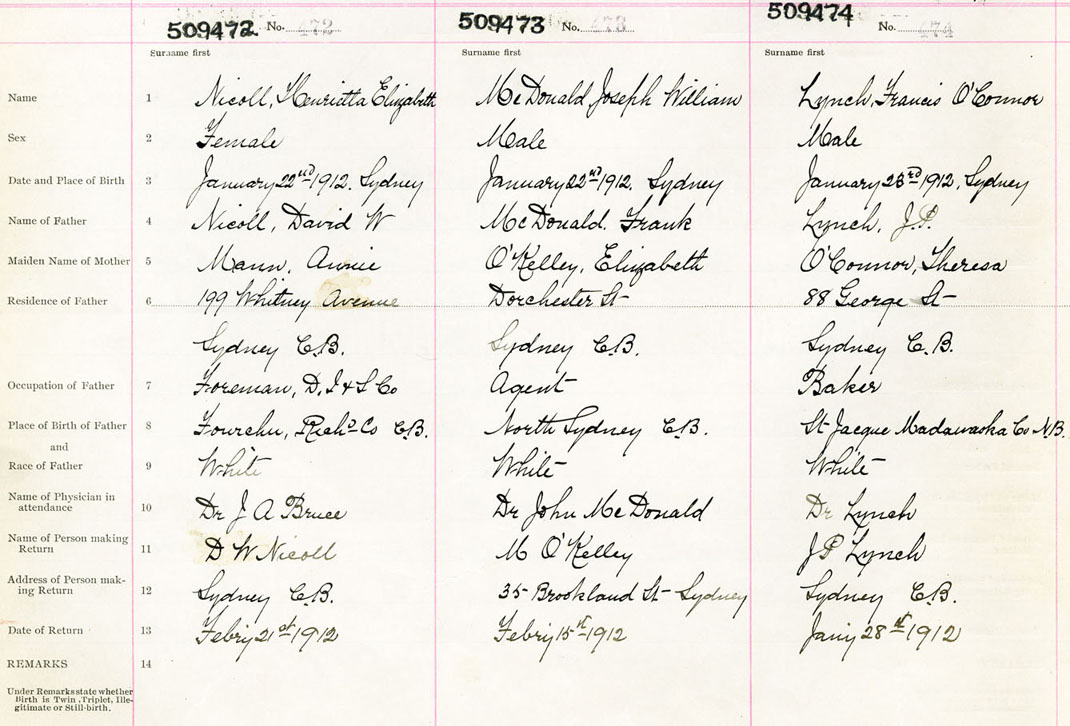 509472 No. 472 509473 No. 473 509474 No. 474
Surname first Surname first Surname first
Name 1 Nicoll, Henrietta Elizabeth McDonald, Joseph William Lynch, Francis O'Connor
Sex 2 Female Male Male
Date and Place of Birth 3 January 22nd 1912. Sydney January 22nd 1912. Sydney January 23rd 1912, Sydney
Name of Father 4 Nicoll, David W McDonald. Frank Lynch, J.P.
Maiden Name of Mother 5 Mann, Annie O'Kelley, Elizabeth O'Connor, Theresa
Residence of Father 6 199 Whitney Avenue Dorchester St 88 George St
Sydney C.B. Sydney C.B. Sydney C.B.
Occupation of Father 7 Foreman, D. I & S Co Agent Baker
Place of Birth of Father 8 Fourchu, Richd Co C.B. North Sydney C.B. St Jacque Madawaska Co N.B.
and
Race of Father 9 White White White
Name of Physician in
attendance 10 Dr J A Bruce Dr John McDonald Dr Lynch
Name of Person making
Return 11 D W Nicoll M O'Kelley J P Lynch
Address of Person mak-
ing Return 12 Sydney C.B. 35 Brookland St Sydney Sydney C.B.
Date of Return 13 Febry 21st 1912 Febry 15st 1912 Jany 28st 1912
REMARKS 14
Under Remarks state whether
Birth is Twin, Triplet, Ille-
gitimate or Still-birth.